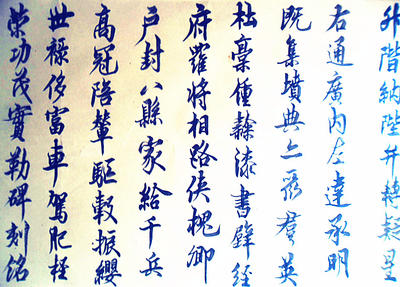 升階納陛弁轉疑星
右通廣內左達承明
既集墳典亦聚羣英
杜稾鍾隸漆書壁經
府羅將相路俠槐卿
戶封八縣家給千兵
高冠陪輦驅轂振纓
世祿侈富車駕肥輕
策功茂實勒碑刻銘